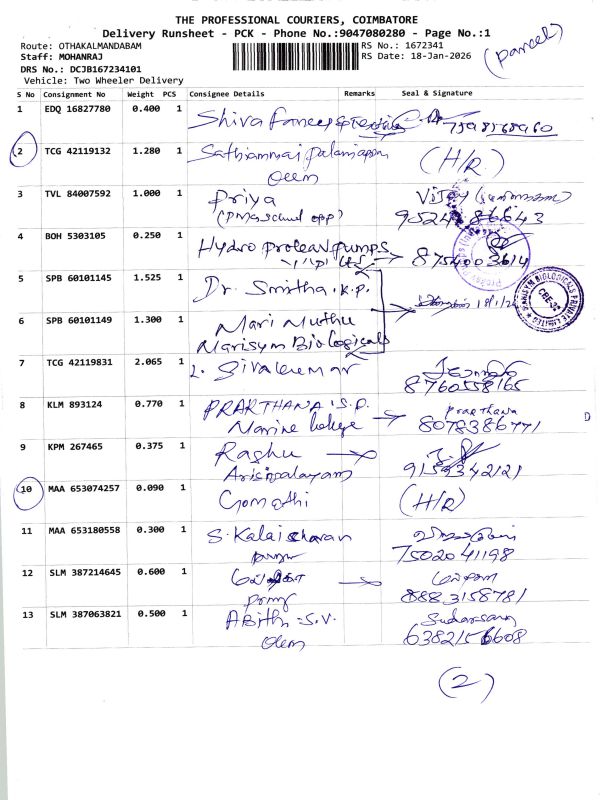 THE PROFESSIONAL COURIERS, COIMBATORE
Delivery Runsheet - PCK - Phone No.:9047080280 - Page No.:1
Route: OTHAKALMANDABAM
RS No.: 1672341
(parcel)
Staff: MOHANRAJ
RS Date: 18-Jan-2026
DRS No.: DCJB167234101
Vehicle: Two Wheeler Delivery
S No Consignment No Weight PCS Consignee Details Remarks Seal & Signature
1 EDQ 16827780 0.400 1 Shiva 7598568960
2 TCG 42119132 1.280 1 Sathiammai Palaniappan (H/R)
Oem
3 TVL 84007592 1.000 1 Priya Vijay
95244 86643
4 BOH 5303105 0.250 1 Hydro prolean pumps
8754003614
5 SPB 60101145 1.525 1 Dr. Smitha .K.P.
MARISYM BIOLOGICALS PRIVATE LIMITED
CBE-32
6 SPB 60101149 1.300 1 Mari Muthu
Marisym Biologicals
7 TCG 42119831 2.065 1 L. Sivakumar
8760558165
8 KLM 893124 0.770 1 PRARTHANA .S.P. Prarthana
Marine 8078386771
D
9 KPM 267465 0.375 1 Raghu
Arisipalayam 9159342121
10 MAA 653074257 0.090 1 Gomathi (H/R)
11 MAA 653180558 0.300 1 S. Kalaicharan
7502041198
12 SLM 387214645 0.600 1
8883158781
13 SLM 387063821 0.500 1 Abithi .S.V. Sudarsan
Oem 6382156608
(2)